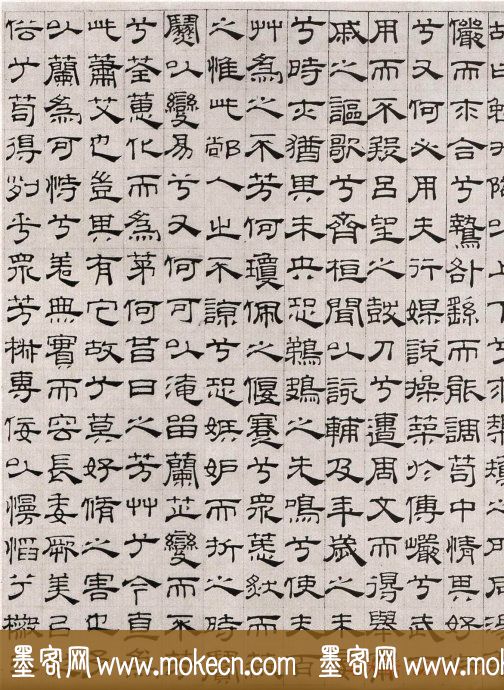 上下兮求
儼而求合兮摯咎繇而能調苟中情其好
兮又何必用夫行媒說操築於傅巖兮武
用而不疑呂望之鼓刀兮遭周文而得舉
戚之謳歌兮齊桓聞以該輔及年歲之未
兮時亦猶其未央恐鵜鴂之先鳴兮使夫百
艸為之不芳何瓊佩之偃蹇兮眾薆然而
之惟此黨人之不諒兮恐嫉妒而折之時
繽以變易兮又何可以淹留蘭芷變而不芳
兮荃蕙化而為茅何昔日之芳艸兮今直
此蕭艾也豈其有它故兮莫好脩之害也予
以蘭為可恃兮羌無實而容長委厥美以
俗兮苟得列乎眾芳椒專佞以慢慆兮樧
墨客网 www.mokecn.com 墨客网 www.mokecn.com